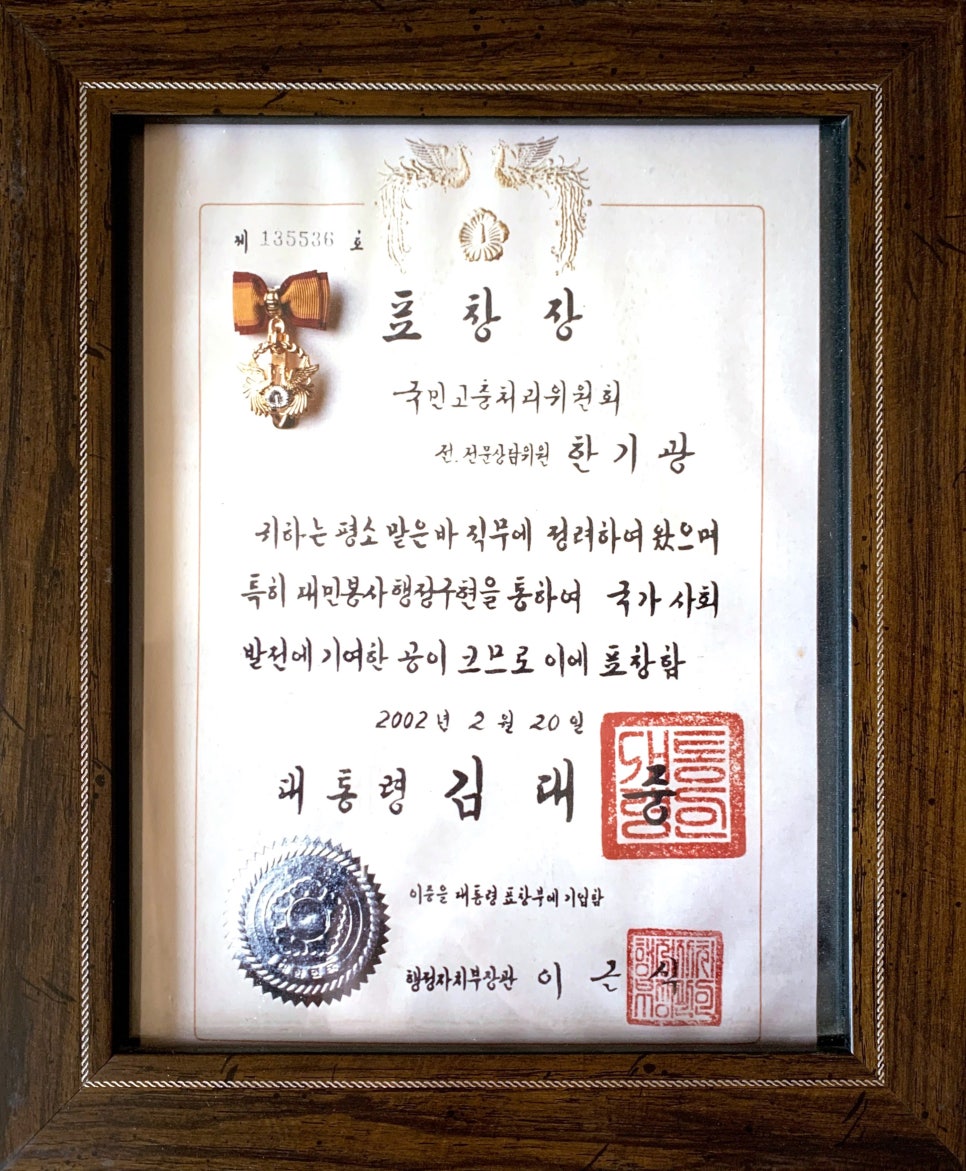 제 135536 호
표창장
국민고충처리위원회
전. 전문상담위원 한기광
귀하는 평소 맡은바 직무에 정려하여 왔으며
특히 대민봉사행정구현을 통하여 국가 사회
발전에 기여한 공이 크므로 이에 표창함
2002년 2월 20일
대통령 김대중
이증을 대통령 표창부에 기입함
행정자치부장관 이근식